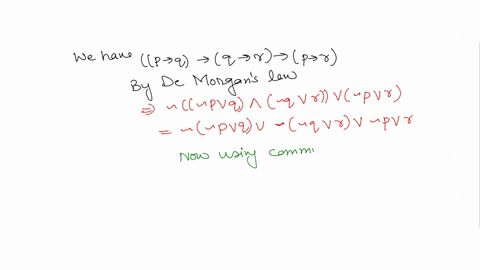 We have ((p→q) → (q→r) → (p→r)
By De Morgan's law
⇒ ~((~p∨q) ∧ (~q∨r)) ∨ (~p∨r)
= ~(~p∨q) ∪ ~(~q∨r) ∨ ~p∨r
Now using comm